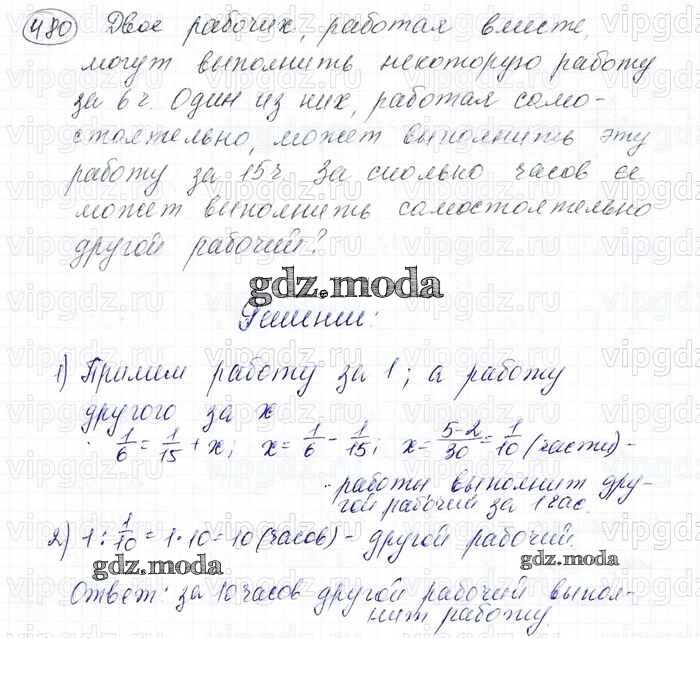 480 Двое рабочих, работая вместе,
могут выполнить некоторую работу
за 6 ч. Один из них, работая само-
стоятельно, может выполнить эту
работу за 15 ч. За сколько часов ее
может выполнить самостоятельно
другой рабочий?
gdz.moda
Решение:
1) Примем работу за 1; а работу
другого за x
1/6 = 1/15 + x; x = 1/6 - 1/15; x = 5-2/30 = 1/10 (части) -
работы выполнит дру-
гой рабочий за 1 час.
2) 1 : 1/10 = 1 · 10 = 10 (часов) - другой рабочий
gdz.moda
gdz.moda
Ответ: за 10 часов другой рабочий выпол-
нит работу.